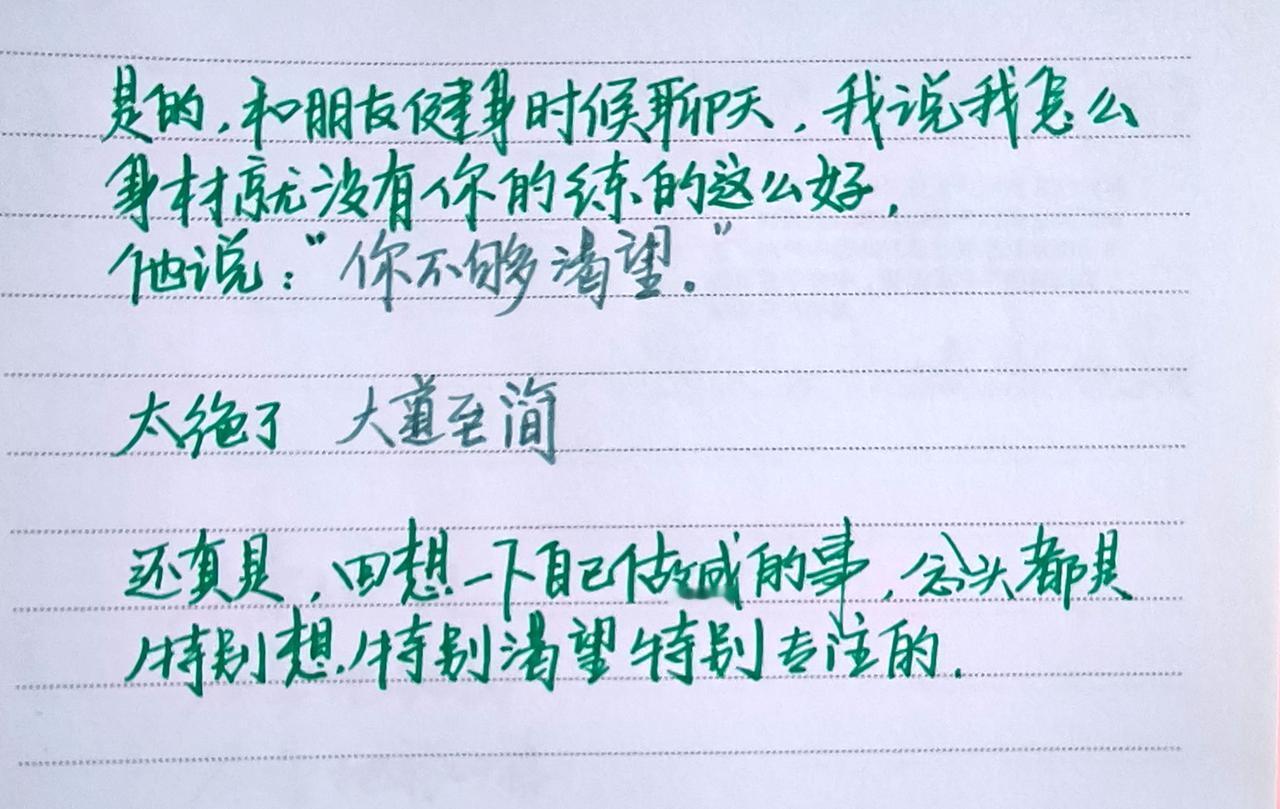 是的,和朋友健身时候聊天,我说我怎么
身材就没有你的练的这么好,
他说:"你不够渴望."
太绝了 大道至简
还真是,回想一下自己做成的事,念头都是
特别想.特别渴望特别专注的.